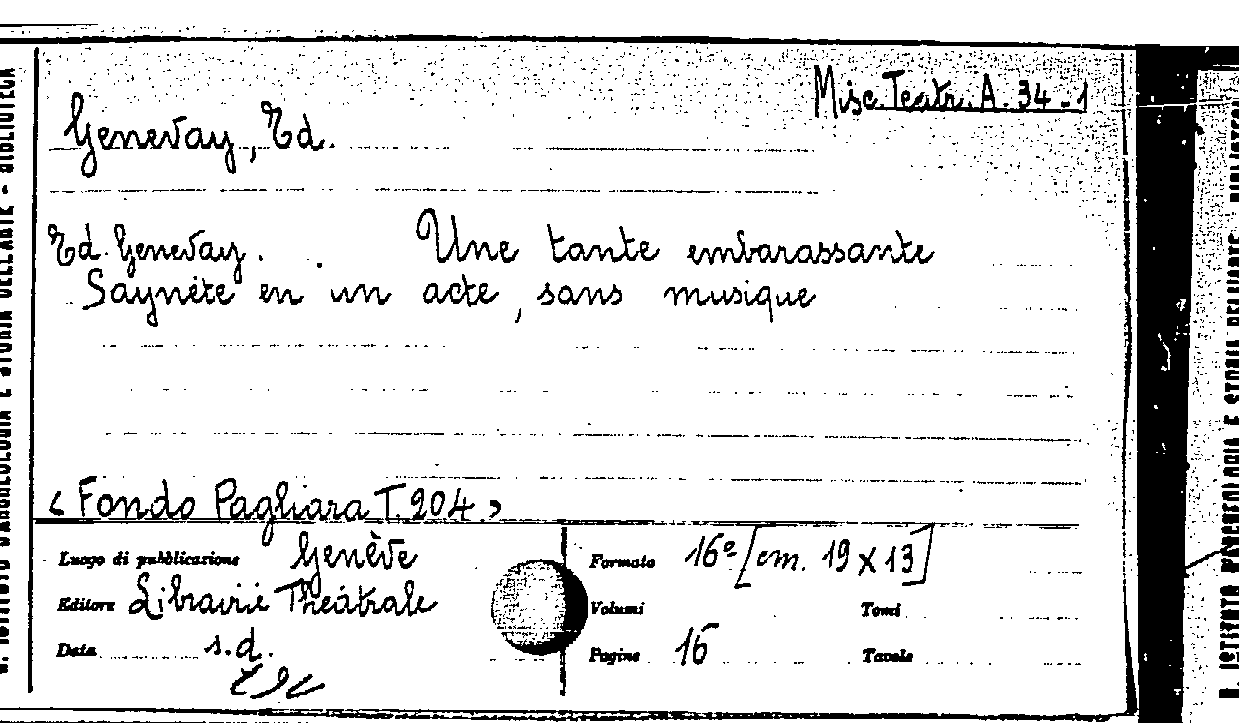 Misc. Teatr. A. 34-1
Genevay, Ed.
Ed. Genevay. Une tante embarassante
Saynète en un acte, sans musique
<Fondo Pagliara T. 204.>
Luogo di pubblicazione Genève
Editore Librairie Théâtrale
Data s.d.
Formato 16º [cm. 19 x 13]
Volumi Tomi
Pagine 16 Tavole
R. ISTITUTO D'ARCHEOLOGIA E STORIA DELL'ARTE - BIBLIOTECA